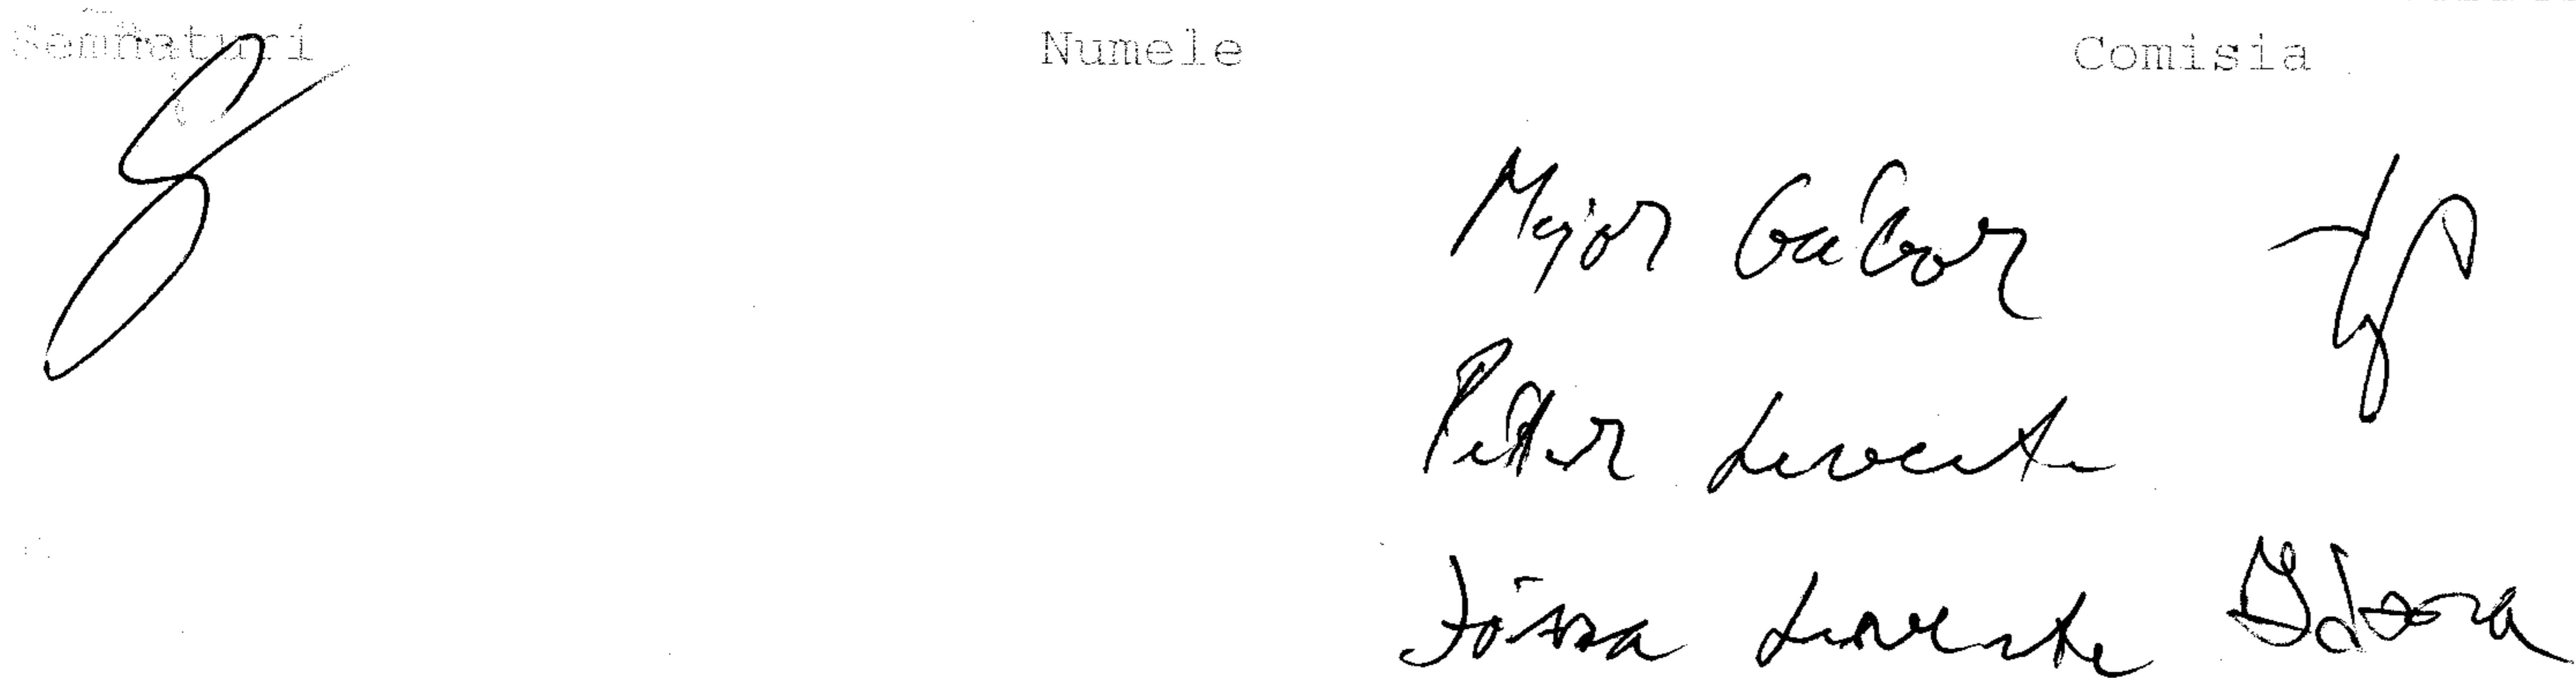 Semnaturi Numele Comisia
Major Gábor
Péter Levente
Levente